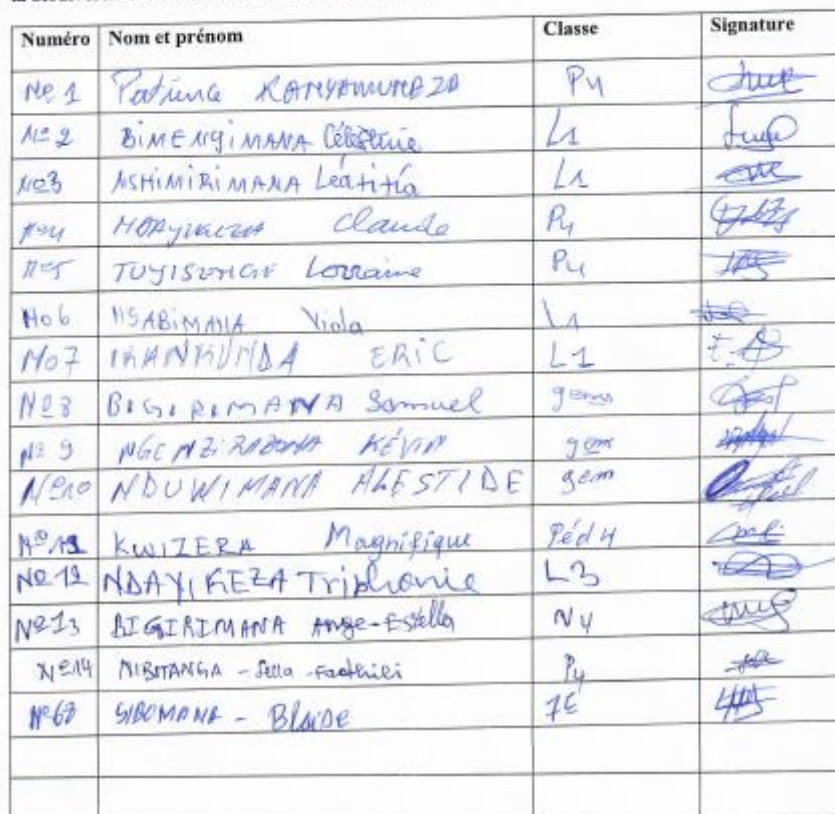 Numéro Nom et prénom Classe Signature
N° 1 Patrince KANYAMUNEZA P4
N° 2 BIMENYIMANA Célestine L1
N°3 NSHIMIRIMANA Léatitia L1
N°4 Claude P4
N°5 TUYISENGE Lorraine P4
No 6 NSABIMANA Viola L1
No7 IRANKUNDA ERIC L1
N°8 BIGIRIMANA Samuel gem
N° 9 NGENZIRABONA KÉVIN gem
N°10 NDUWIMANA ALESTIDE gem
N°11 KWIZERA Magnifique Péd 4
N°12 NDAYIKEZA Triphonie L3
N°13 BIGIRIMANA Ange-Estella N4
N°14 MIBUTANGA - Sella - P4
N°68 SIBOMANA - Blaide 7E